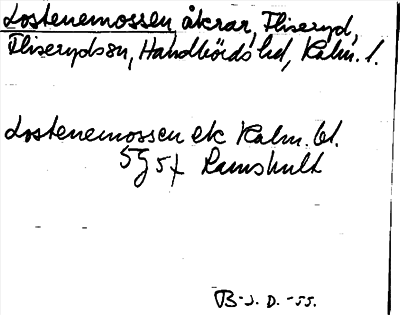 Lostenemossen, åkrar, Fliseryd,
Fliseryds sn, Handbörds hd, Kalm. l.
Lostenemossen ek Kalm. bl.
5G5f Ramshult
B-J. D. -55.